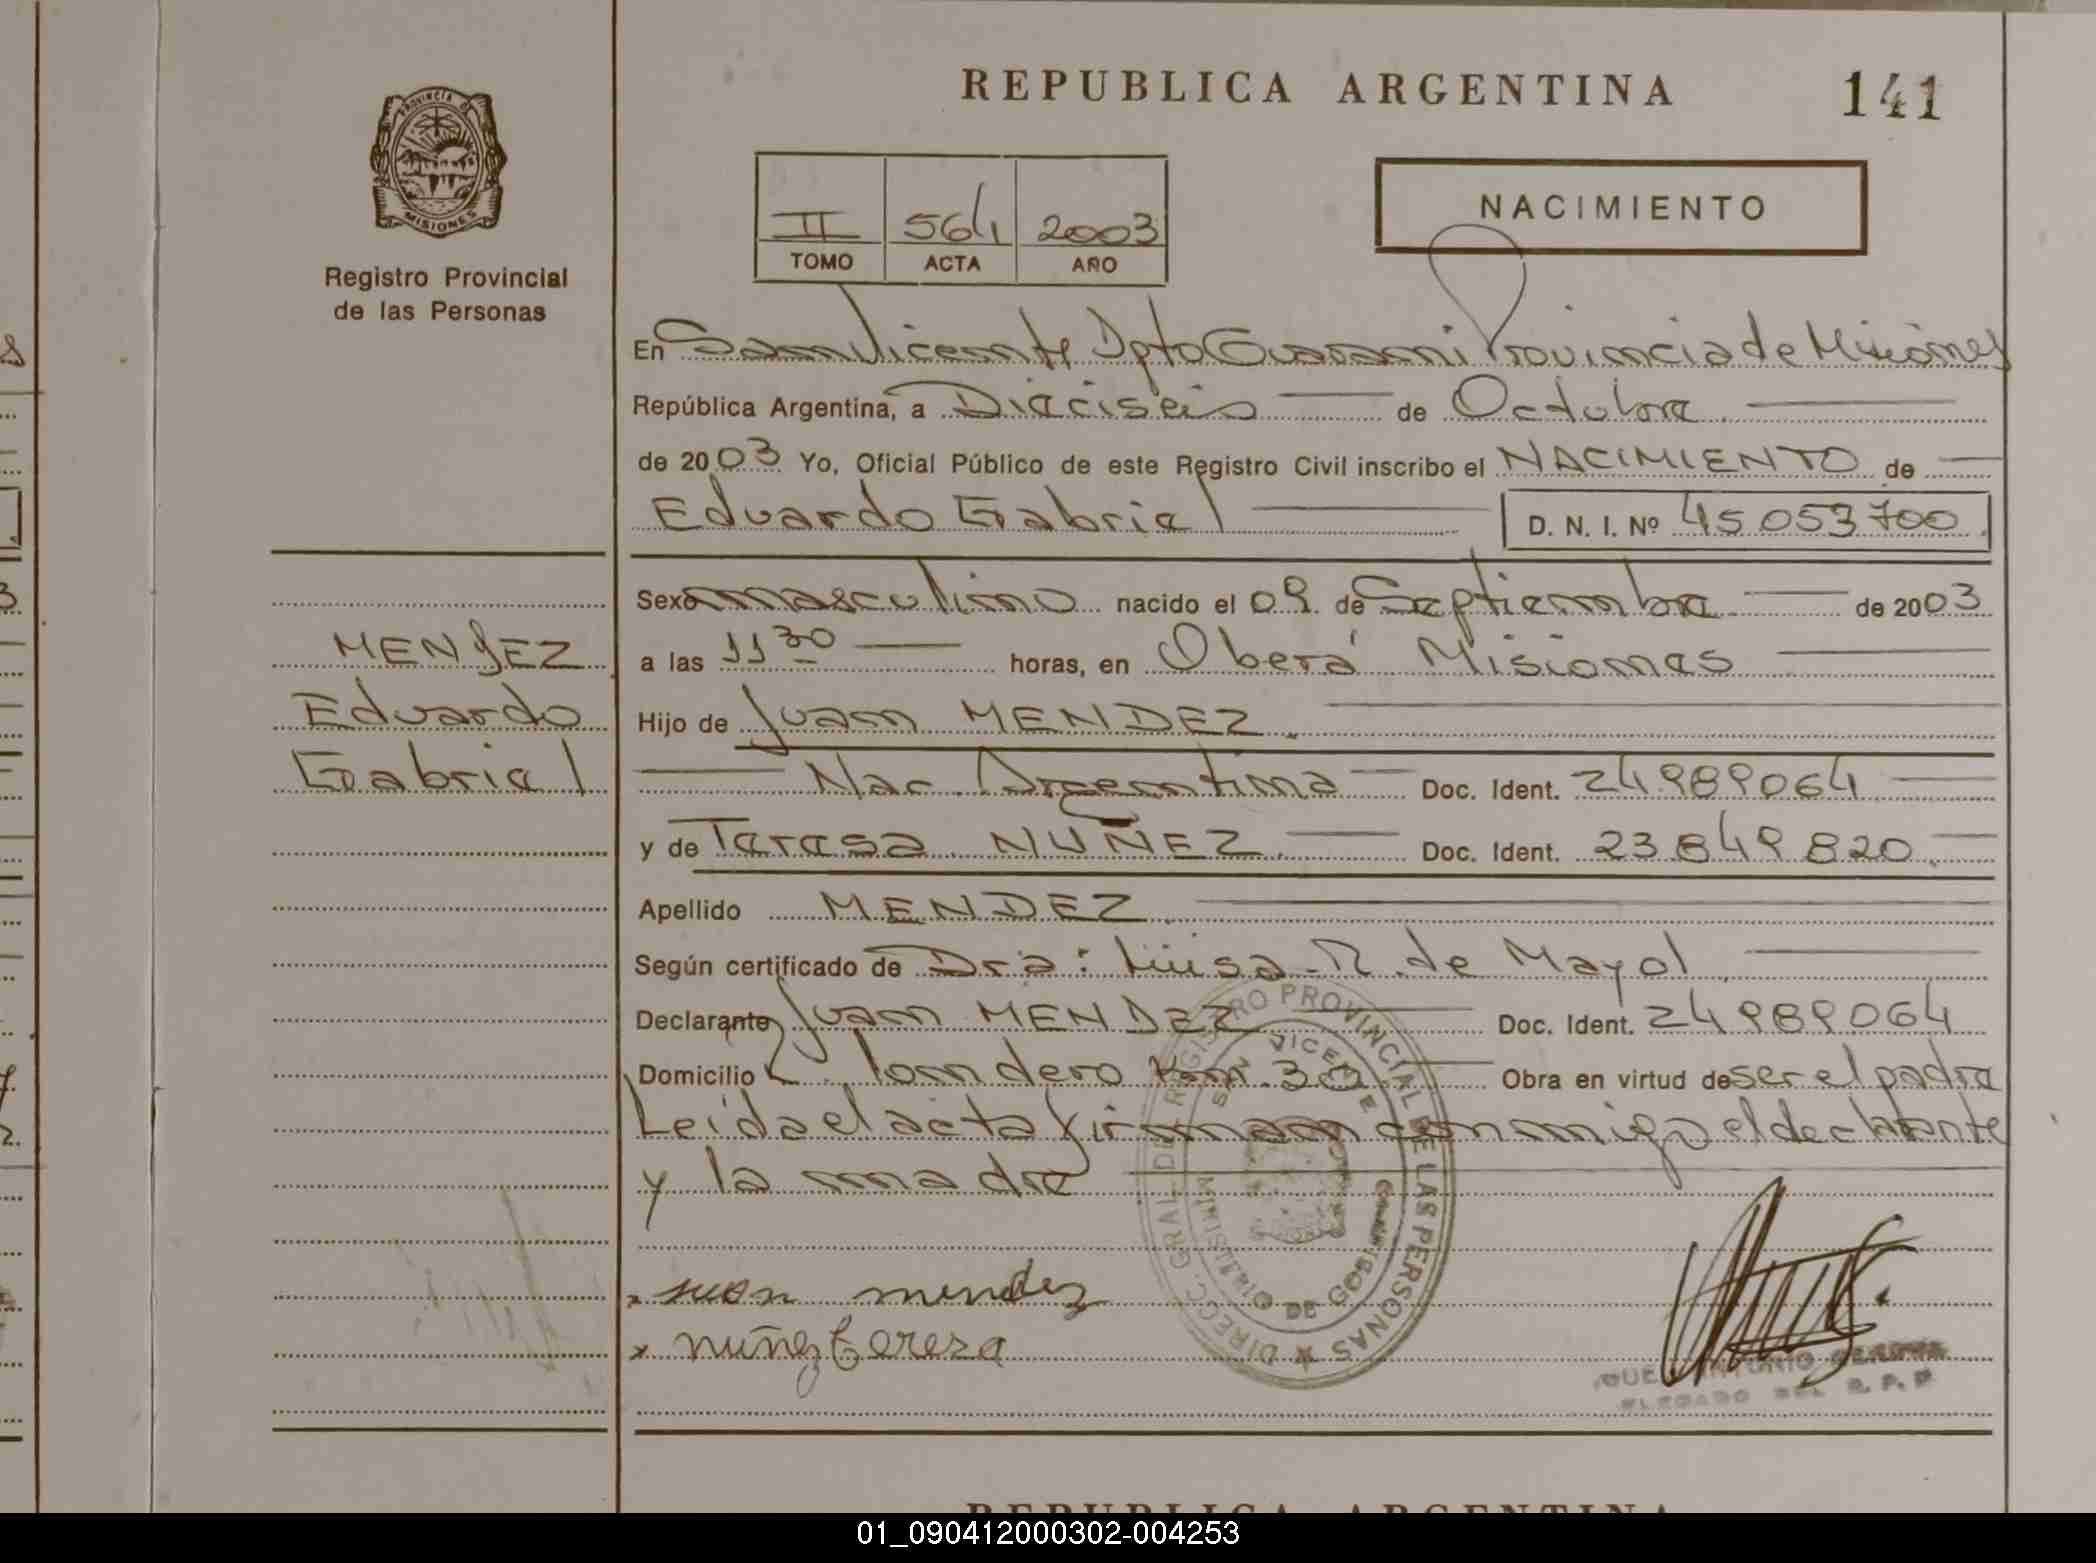 REPUBLICA ARGENTINA
141
PROVINCIA DE
MISIONES
Registro Provincial
de las Personas
II 564 2003
TOMO ACTA AÑO
NACIMIENTO
En San Vicente Dpto Guarani Provincia de Misiones
República Argentina, a Dieciseis de Octubre
de 2003 Yo, Oficial Público de este Registro Civil inscribo el NACIMIENTO de
Eduardo Gabriel D. N. I. Nº 45.053.700
Sexo masculino nacido el 09 de Septiembre de 2003
a las 11 30 horas, en Oberá Misiones
Hijo de Juan MENDEZ
Nac. Argentina Doc. Ident. 24.989.064
y de Teresa NUÑEZ Doc. Ident. 23.849.820
Apellido MENDEZ
Según certificado de Dra: Luisa R. de Mayol
Declarante Juan MENDEZ Doc. Ident. 24.989.064
Domicilio Londero Km. 30 Obra en virtud de ser el padre
Leída el acta firman conmigo el declarante
y la madre
MENDEZ
Eduardo
Gabriel
x juan mendez
x nuñez teresa
DIRECC. GRAL. DE REGISTRO PROVINCIAL DE LAS PERSONAS
SAN VICENTE
MINISTERIO DE GOBIERNO
ANTONIO
DEL R. P. P
REPUBLICA ARGENTINA
01_090412000302-004253